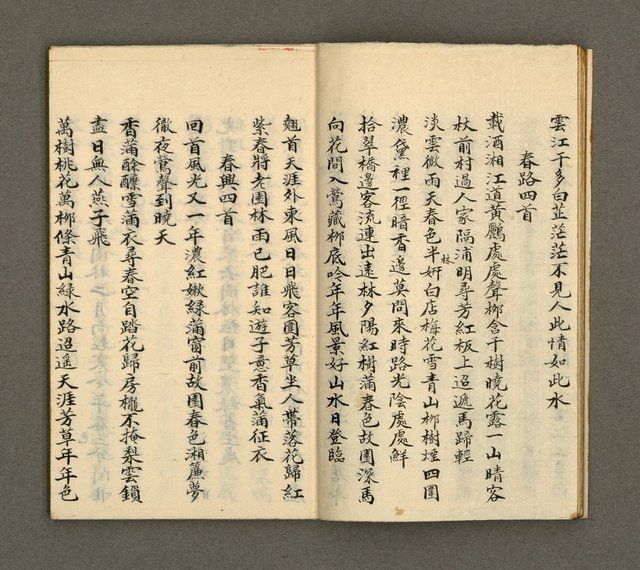 雲江千多白芷茫茫不見人此情如此水
春路四首
載酒湘江道黃鸝處處聲栁含千樹曉花露一山晴客
杖前村過人家隔浦明尋芳紅板上迢遞馬蹄輕
淡雲微雨天春色半林妍白店梅花雪青山栁樹煙四圍
濃黛裡一徑暗香邊莫問來時路光陰處處鮮
拾翠橋邊客流連出遠林夕陽紅樹滿春色故園深馬
向花間入鶯藏栁底吟年年風景好山水日登臨
翹首天涯外東風日日飛客園芳草坐人帶落花歸紅
紫春將老園林雨已肥誰知遊子意香氣滿征衣
春興四首
回首風光又一年濃紅嫩綠滿窗前故園春色湘簾夢
徹夜鶯聲到曉天
香滿酴醾雪滿衣尋春空自踏花歸房櫳不掩梨雲鎖
盡日無人燕子飛
萬樹桃花萬栁條青山綠水路迢遥天涯芳草年年色